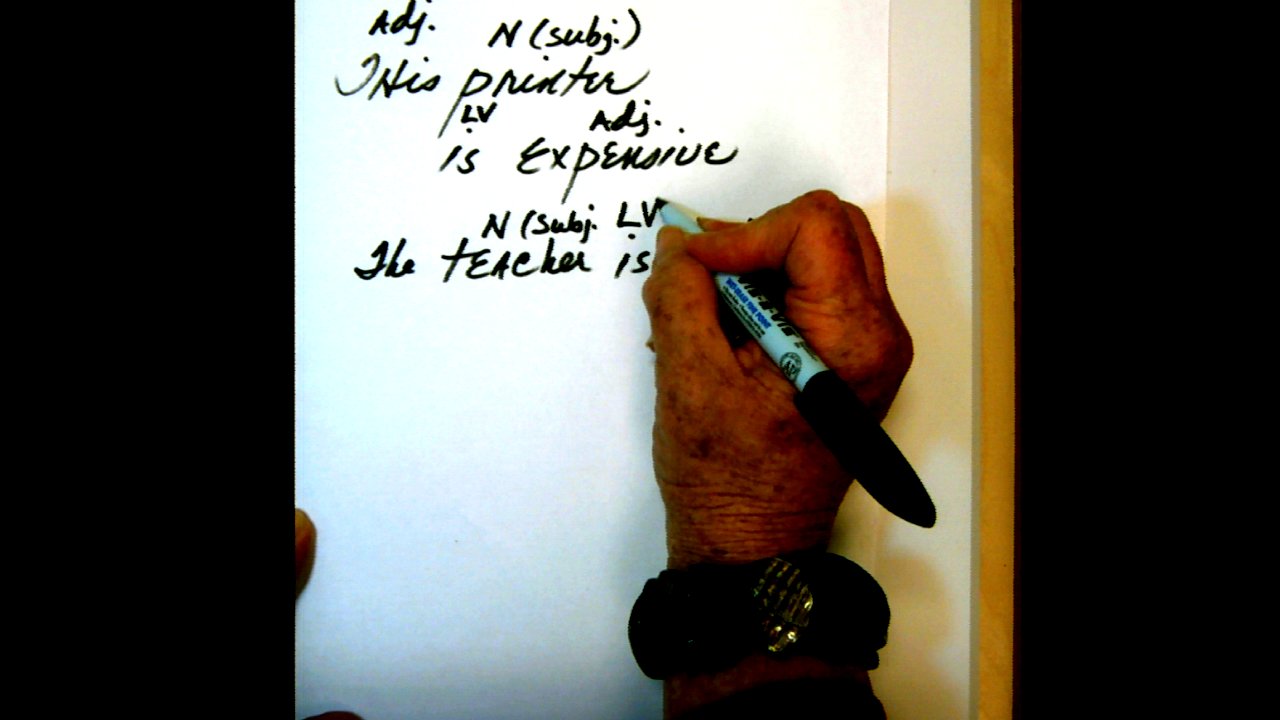 Adj. N (subj.)
THis printer
LV Adj.
is Expensive
N (subj. LV
The tEAcher is